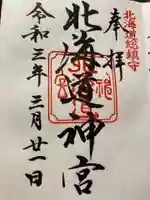 北海道総鎮守
奉拝
北海道神宮
令和三年三月廿一日